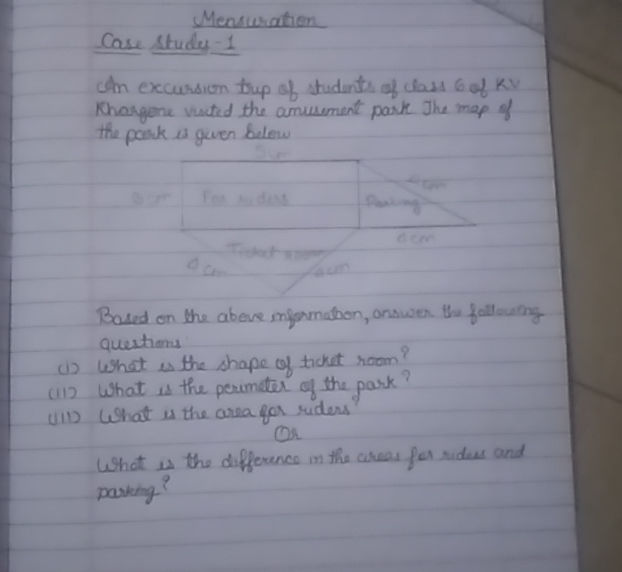 Mensuration
Case Study-1
An excursion trip of students of class 6 of KV
Khargone visited the amusement park The map of
the park is given below
5cm
cm For riders Parking cm
Ticket room 6cm
cm 4cm
Based on the above information, answer the following
questions
(i) What is the shape of ticket room?
(ii) What is the perimeter of the park?
(iii) What is the area for riders?
Or
What is the difference in the areas for riders and
parking?